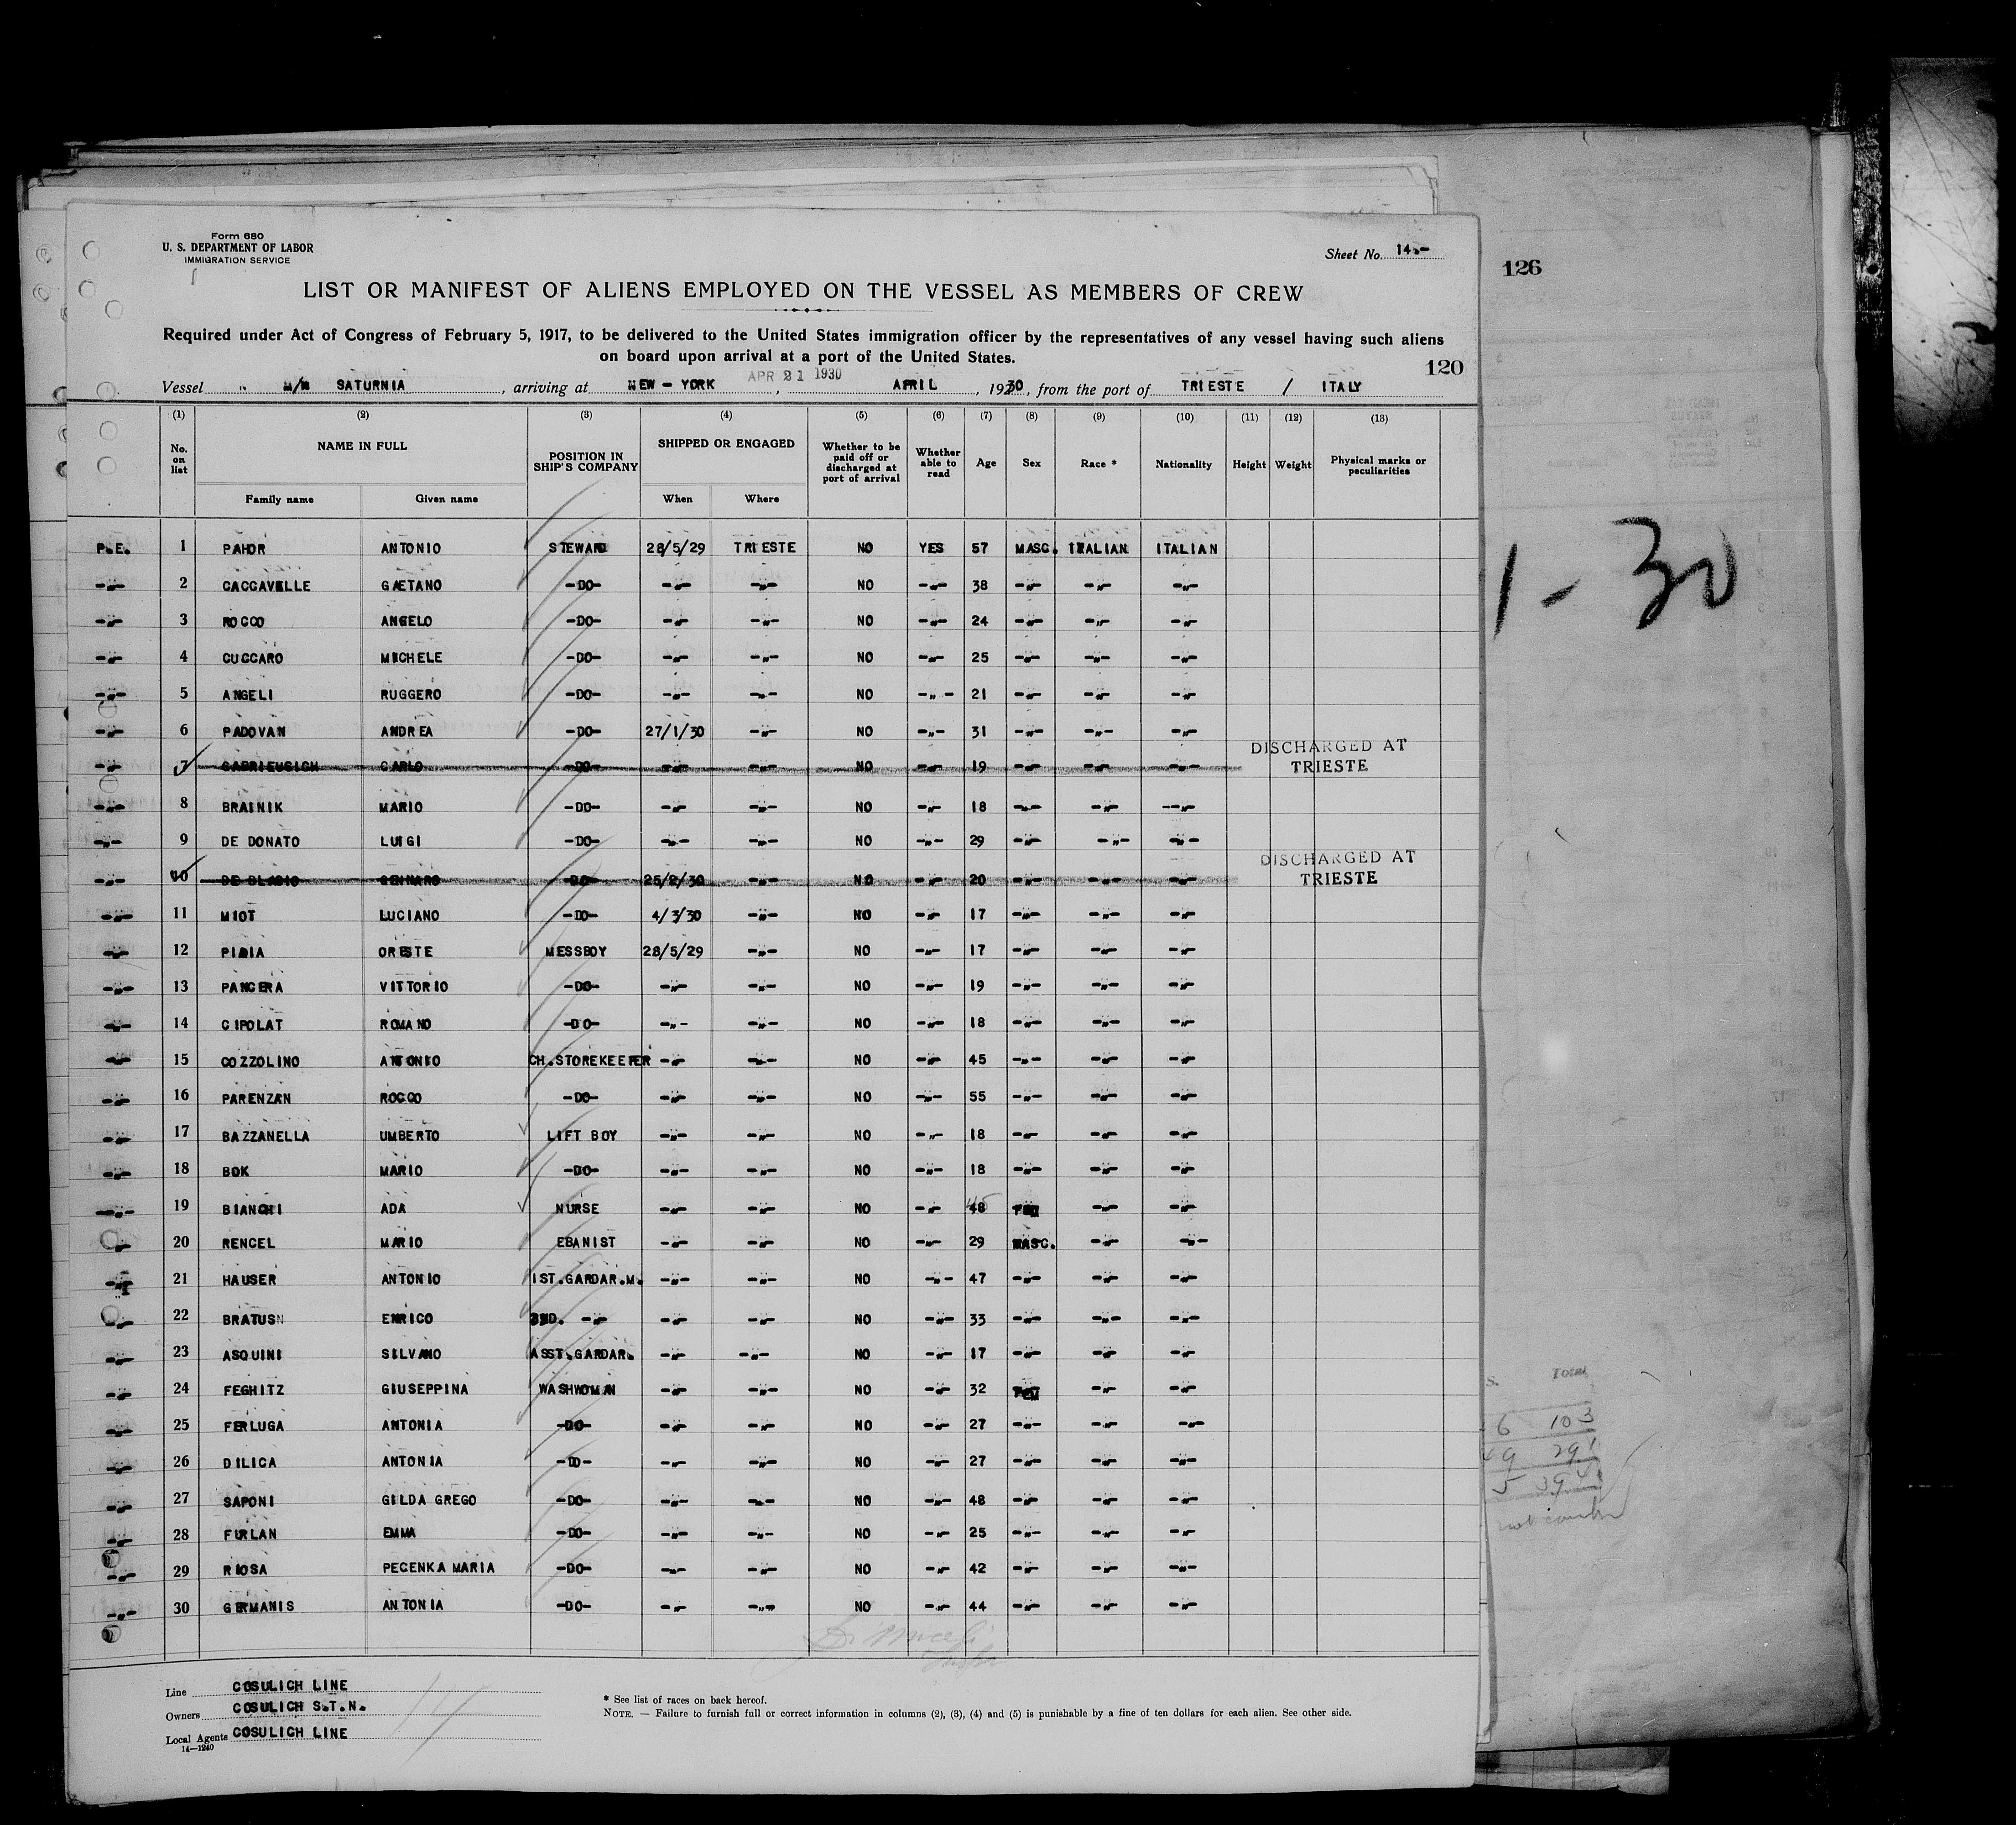 Form 680
U. S. DEPARTMENT OF LABOR
IMMIGRATION SERVICE
Sheet No. 14.-
126
LIST OR MANIFEST OF ALIENS EMPLOYED ON THE VESSEL AS MEMBERS OF CREW
Required under Act of Congress of February 5, 1917, to be delivered to the United States immigration officer by the representatives of any vessel having such aliens
on board upon arrival at a port of the United States.
120
Vessel M/N SATURNIA, arriving at NEW-YORK APR 21 1930, APRIL, 1930, from the port of TRIESTE / ITALY
(1) (2) (3) (4) (5) (6) (7) (8) (9) (10) (11) (12) (13)
No. on list NAME IN FULL Family name Given name POSITION IN SHIP'S COMPANY SHIPPED OR ENGAGED When Where Whether to be paid off or discharged at port of arrival Whether able to read Age Sex Race * Nationality Height Weight Physical marks or peculiarities
P.E. 1 PAHOR ANTONIO STEWARD 28/5/29 TRIESTE NO YES 57 MASC. ITALIAN ITALIAN
-"- 2 CACCAVELLE GAETANO -DO- -"- -"- NO -"- 38 -"- -"- -"-
-"- 3 ROCCO ANGELO -DO- -"- -"- NO -"- 24 -"- -"- -"-
-"- 4 CUCCARO MICHELE -DO- -"- -"- NO -"- 25 -"- -"- -"-
-"- 5 ANGELI RUGGERO -DO- -"- -"- NO -"- 21 -"- -"- -"-
-"- 6 PADOVAN ANDREA -DO- 27/1/30 -"- NO -"- 31 -"- -"- -"-
-"- 7 GABRIEUSICH CARLO -DO- -"- -"- NO -"- 19 -"- -"- -"- DISCHARGED AT TRIESTE
-"- 8 BRAINIK MARIO -DO- -"- -"- NO -"- 18 -"- -"- -"-
-"- 9 DE DONATO LUIGI -DO- -"- -"- NO -"- 29 -"- -"- -"-
-"- 10 DE BLASIO GENNARO -DO- 25/2/30 -"- NO -"- 20 -"- -"- -"- DISCHARGED AT TRIESTE
-"- 11 MIOT LUCIANO -DO- 4/3/30 -"- NO -"- 17 -"- -"- -"-
-"- 12 ORESTE MESSBOY 28/5/29 -"- NO -"- 17 -"- -"- -"-
-"- 13 PANCERA VITTORIO -DO- -"- -"- NO -"- 19 -"- -"- -"-
-"- 14 CIPOLAT ROMANO -DO- -"- -"- NO -"- 18 -"- -"- -"-
-"- 15 COZZOLINO ANTONIO CH.STOREKEEPER -"- -"- NO -"- 45 -"- -"- -"-
-"- 16 PARENZAN ROCCO -DO- -"- -"- NO -"- 55 -"- -"- -"-
-"- 17 BAZZANELLA UMBERTO LIFT BOY -"- -"- NO -"- 18 -"- -"- -"-
-"- 18 BOK MARIO -DO- -"- -"- NO -"- 18 -"- -"- -"-
-"- 19 BIANCHI ADA NURSE -"- -"- NO -"- 48 FEM -"- -"-
-"- 20 RENCEL MARIO EBANIST -"- -"- NO -"- 29 MASC. -"- -"-
-"- 21 HAUSER ANTONIO 1ST.GARDAR.M. -"- -"- NO -"- 47 -"- -"- -"-
-"- 22 BRATUSN ENRICO 2ND. -"- -"- -"- NO -"- 33 -"- -"- -"-
-"- 23 ASQUINI SILVANO ASST.GARDAR. -"- -"- NO -"- 17 -"- -"- -"-
-"- 24 FEGHITZ GIUSEPPINA WASHWOMAN -"- -"- NO -"- 32 FEM -"- -"-
-"- 25 FERLUGA ANTONIA -DO- -"- -"- NO -"- 27 -"- -"- -"-
-"- 26 DILICA ANTONIA -DO- -"- -"- NO -"- 27 -"- -"- -"-
-"- 27 SAPONI GILDA GREGO -DO- -"- -"- NO -"- 48 -"- -"- -"-
-"- 28 FURLAN EMMA -DO- -"- -"- NO -"- 25 -"- -"- -"-
-"- 29 RIOSA PECENKA MARIA -DO- -"- -"- NO -"- 42 -"- -"- -"-
-"- 30 GERMANIS ANTONIA -DO- -"- -"- NO -"- 44 -"- -"- -"-
Line COSULICH LINE
Owners COSULICH S.T.N.
Local Agents COSULICH LINE
14—1240
14
* See list of races on back hereof.
NOTE. — Failure to furnish full or correct information in columns (2), (3), (4) and (5) is punishable by a fine of ten dollars for each alien. See other side.
1-30
s. Total
6 103
49 291
5 394